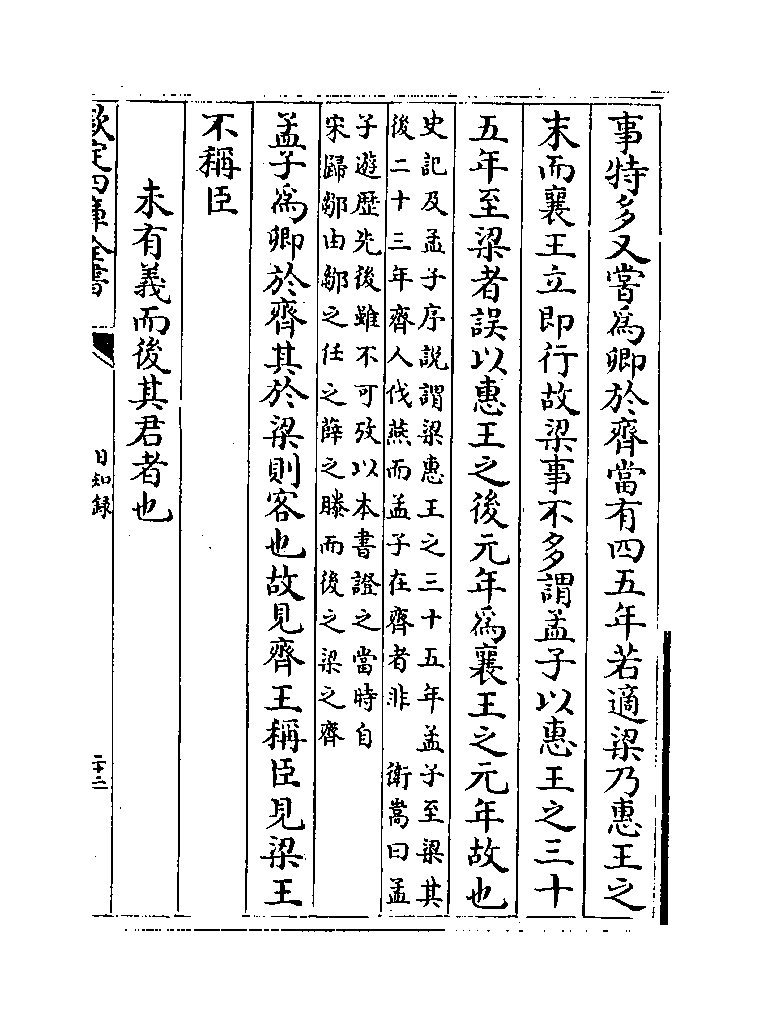 事特多又嘗為卿於齊當有四五年若適梁乃惠王之
末而襄王立即行故梁事不多謂孟子以惠王之三十
五年至梁者誤以惠王之後元年為襄王之元年故也
史記及孟子序説謂梁惠王之三十五年孟子至梁其
後二十三年齊人伐燕而孟子在齊者非　衛嵩曰孟
子遊歴先後雖不可攷以本書證之當時自
宋歸鄒由鄒之任之薛之滕而後之梁之齊
孟子為卿於齊其於梁則客也故見齊王稱臣見梁王
不稱臣
未有義而後其君者也
欽定四庫全書
日知録
二十二